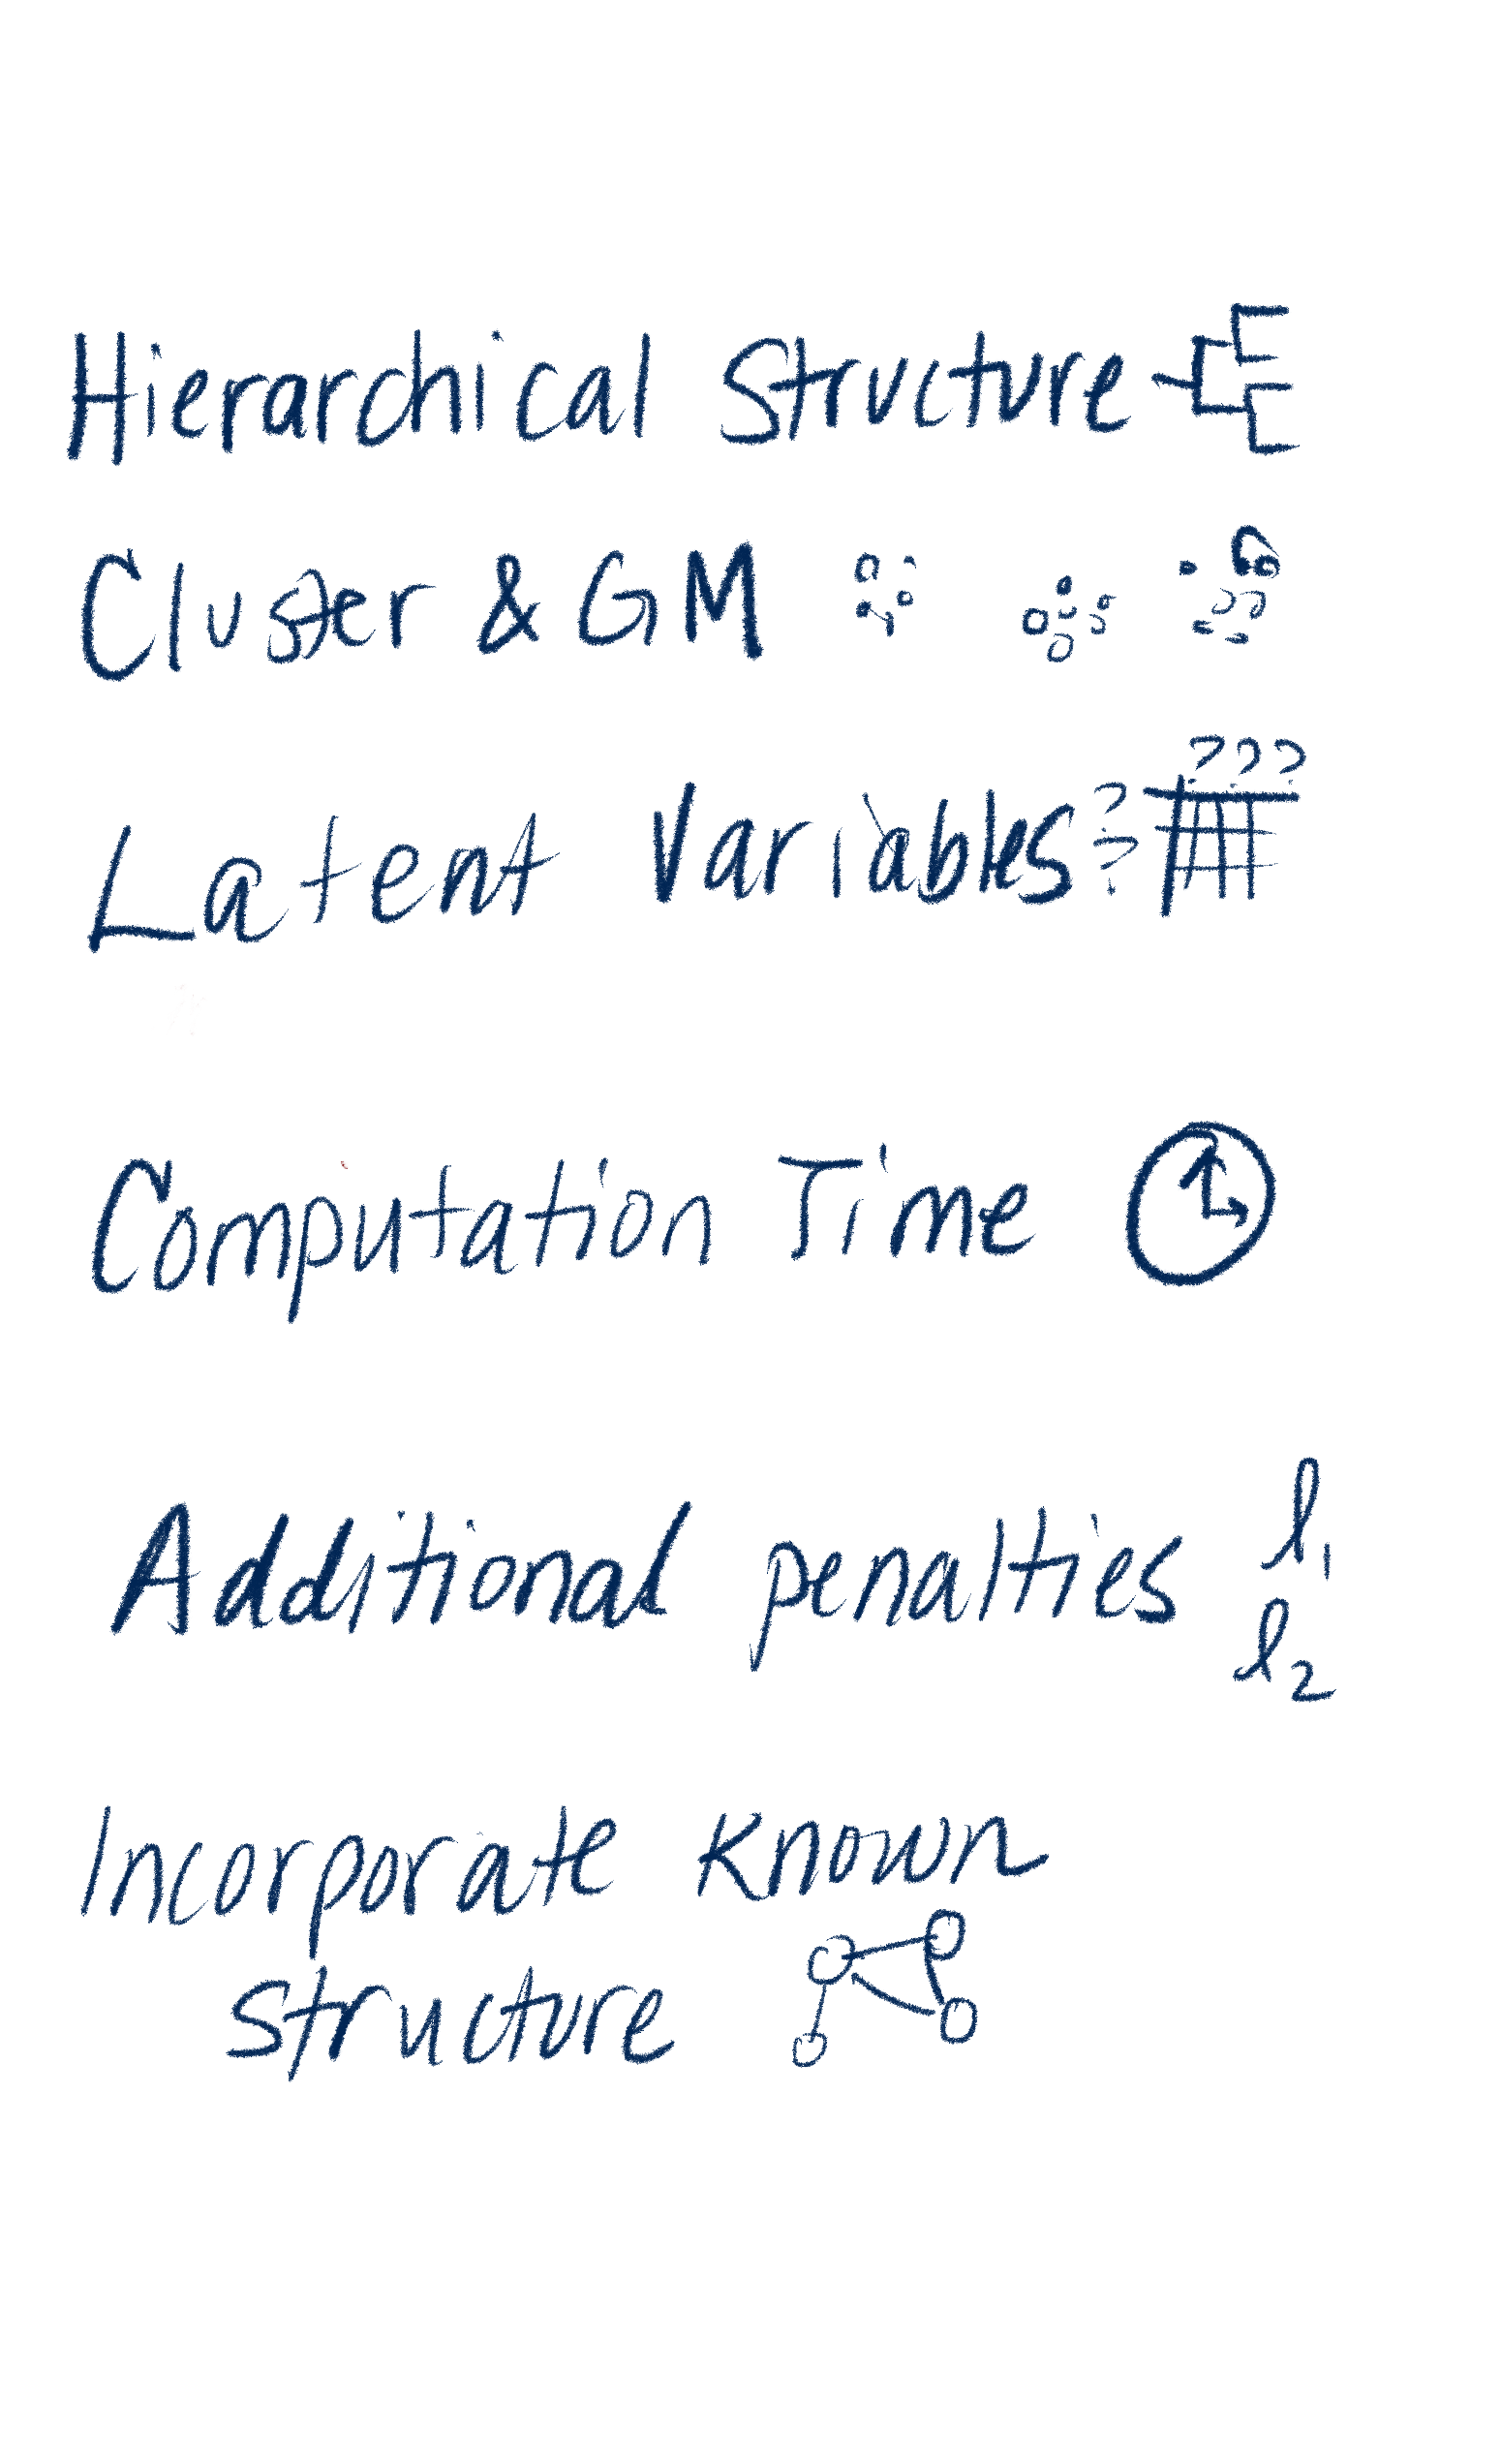 Hierarchical Structure
Cluster & GM
???
Latent Variables ? ?
Computation Time
Additional penalties l₁
l₂
Incorporate Known
structure